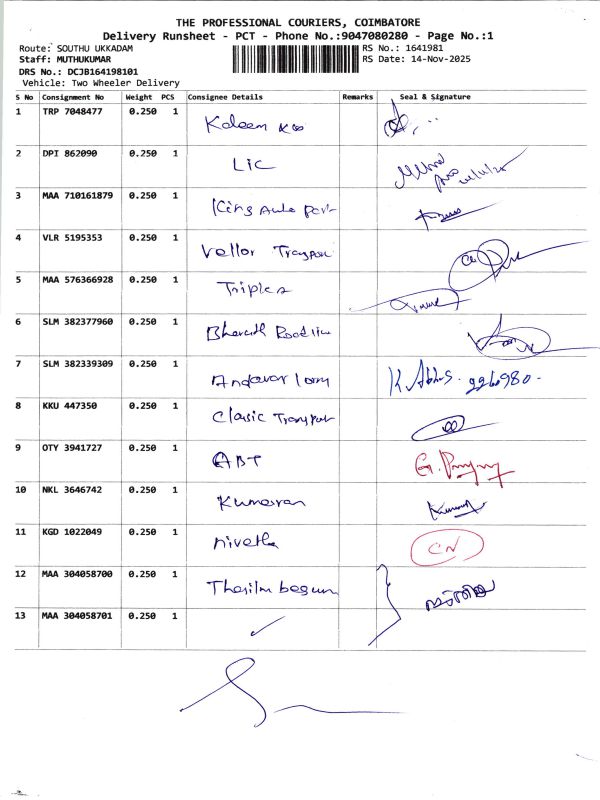 THE PROFESSIONAL COURIERS, COIMBATORE
Delivery Runsheet - PCT - Phone No.:9047080280 - Page No.:1
Route: SOUTHU UKKADAM RS No.: 1641981
Staff: MUTHUKUMAR RS Date: 14-Nov-2025
DRS No.: DCJB164198101
Vehicle: Two Wheeler Delivery
S No Consignment No Weight PCS Consignee Details Remarks Seal & Signature
1 TRP 7048477 0.250 1 Kaleem
2 DPI 862090 0.250 1 LIC
3 MAA 710161879 0.250 1 King Auto Part
4 VLR 5195353 0.250 1 Vellor Transport
5 MAA 576366928 0.250 1 Triples
6 SLM 382377960 0.250 1 Bharath Roadline
7 SLM 382339309 0.250 1 Andavar lorry K. Abbas.
8 KKU 447350 0.250 1 Classic Transport
9 OTY 3941727 0.250 1 ABT
10 NKL 3646742 0.250 1 Kumaran
11 KGD 1022049 0.250 1 Nivetha CN
12 MAA 304058700 0.250 1 Thasilm begum
13 MAA 304058701 0.250 1 ✓